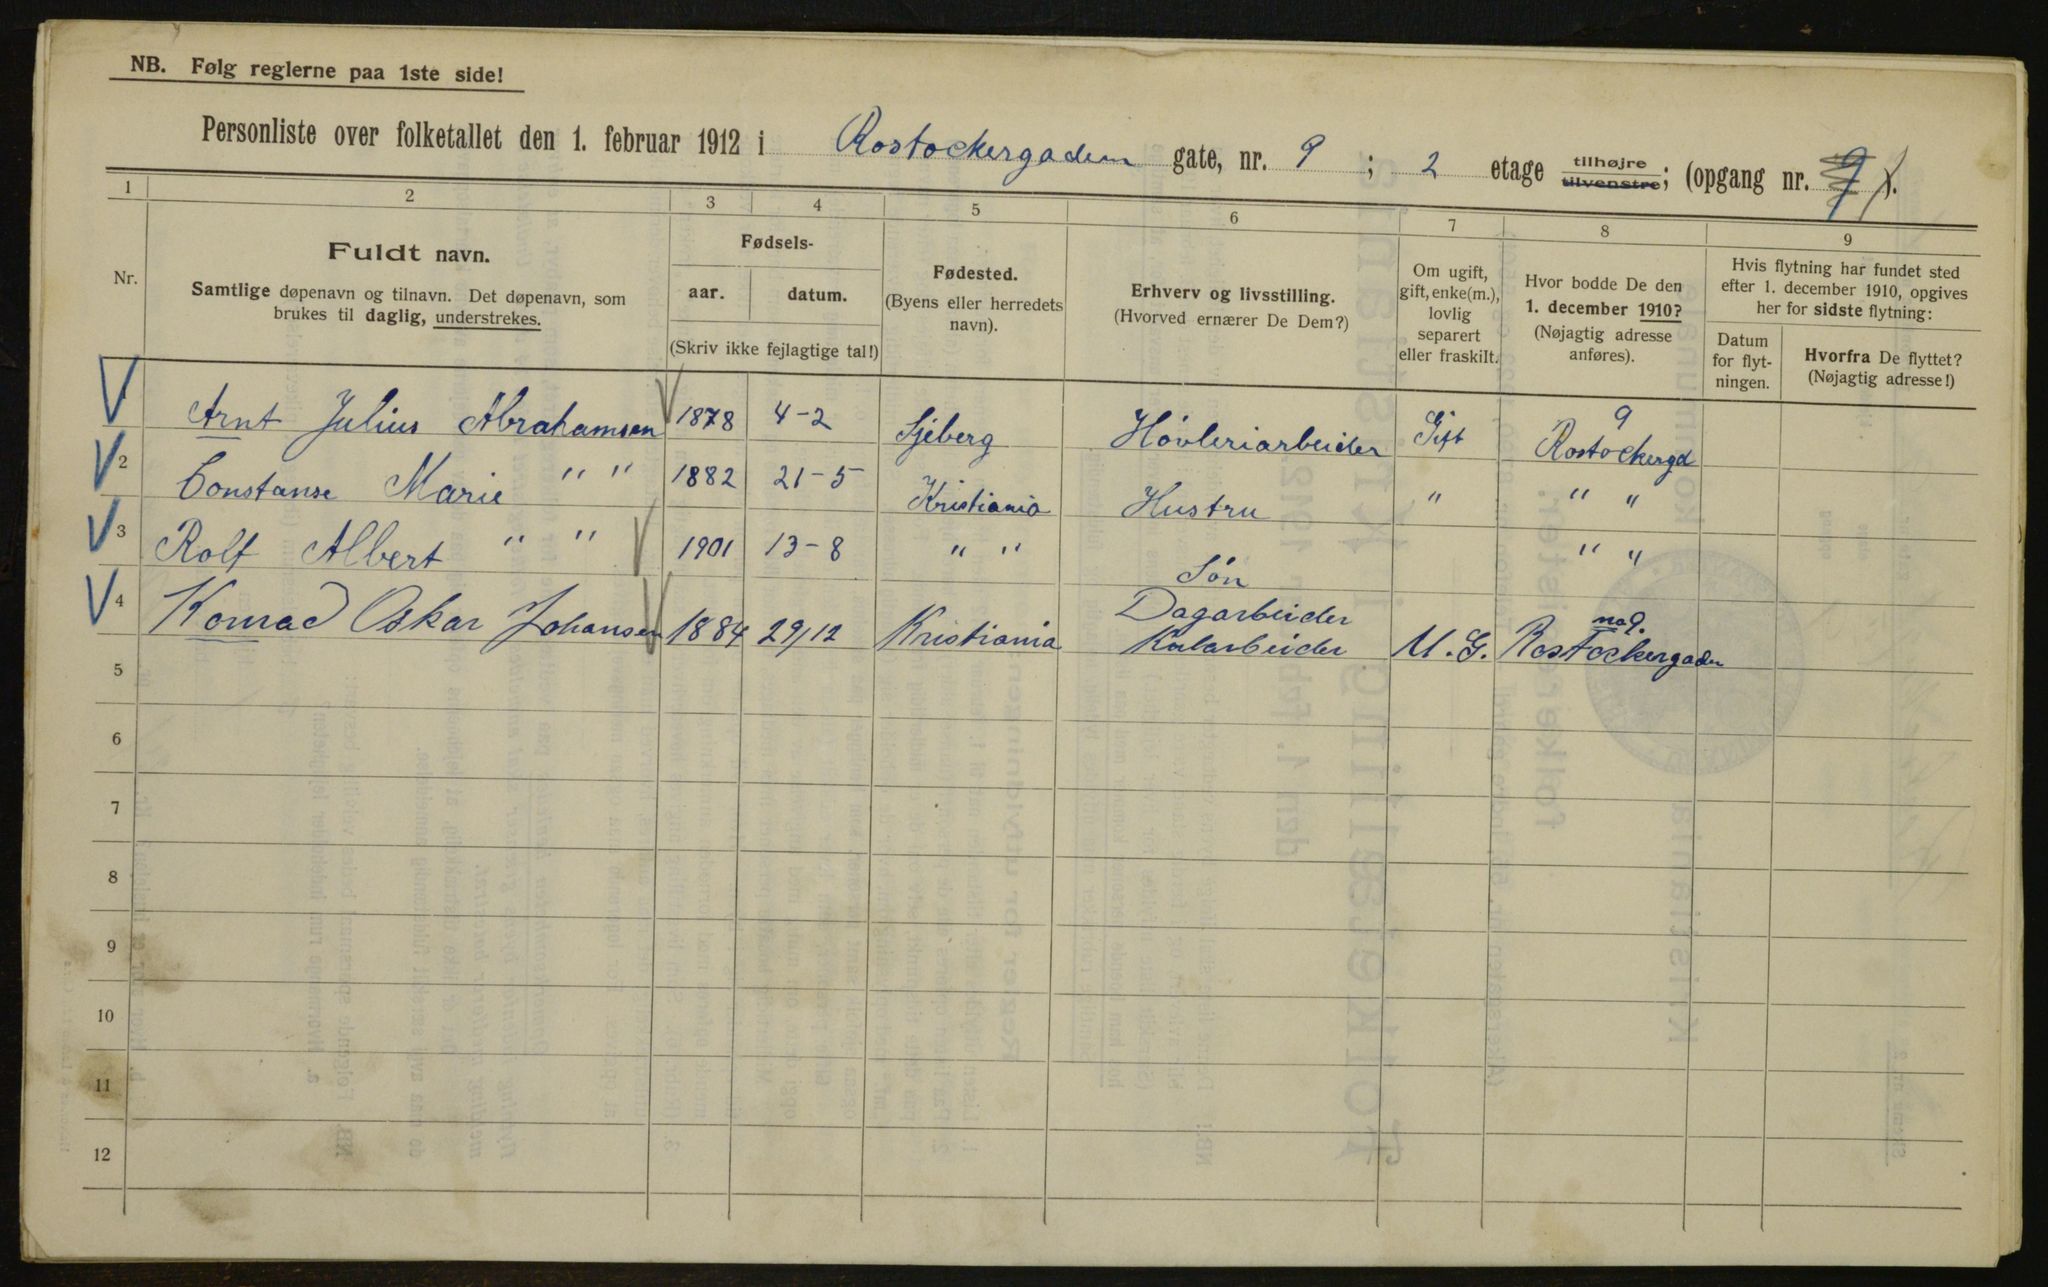 NB. Følg reglerne paa 1ste side!
Personliste over folketallet den 1. februar 1912 i Rostockergaden gate, nr. 9 ; 2 etage tilhøjre tilvenstre; (opgang nr. ).
1 2 3 4 5 6 7 8 9
Nr.
Fuldt navn.
Samtlige døpenavn og tilnavn. Det døpenavn, som
brukes til daglig, understrekes.
Fødsels-
aar. datum.
(Skriv ikke fejlagtige tal!)
Fødested.
(Byens eller herredets
navn).
Erhverv og livsstilling.
(Hvorved ernærer De Dem?)
Om ugift,
gift, enke(m.),
lovlig
separert
eller fraskilt.
Hvor bodde De den
1. december 1910?
(Nøjagtig adresse
anføres).
Hvis flytning har fundet sted
efter 1. december 1910, opgives
her for sidste flytning:
Datum
for flyt-
ningen.
Hvorfra De flyttet?
(Nøjagtig adresse!)
9
Arnt Julius Abrahamsen 1878 4-2 Sjeberg Høvleriarbeider Gift Rostockergd
2 Constanse Marie " " 1882 21-5 Kristiania Hustru " " "
3 Rolf Albert " " 1901 13-8 " " Søn " "
Dagarbeider no 9.
4 Konrad Oskar Johansen 1884 29/12 Kristiania Kularbeider U.G. Rostockergaden
5
6
7
8
9
10
11
12